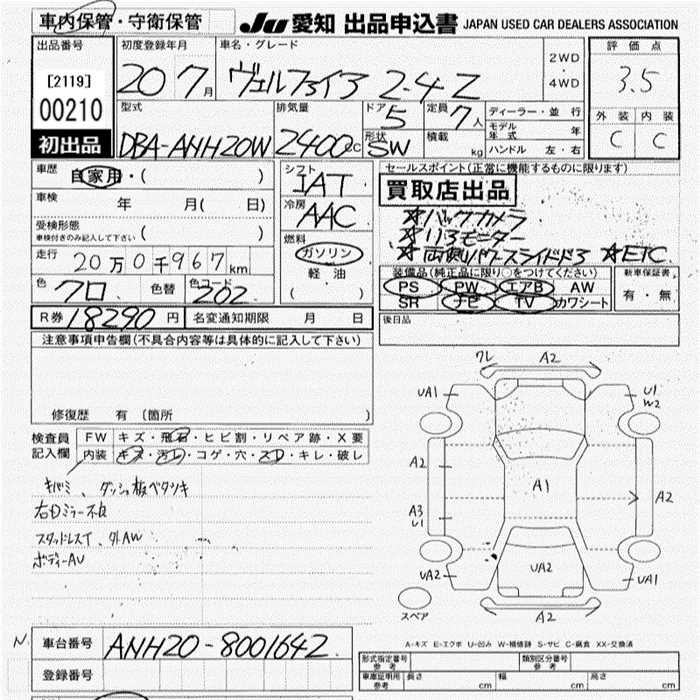 車内保管・守衛保管
JU 愛知 出品申込書 JAPAN USED CAR DEALERS ASSOCIATION
出品番号
[2119]
00210
初出品
初度登録年月
20 7月
車名・グレード
ヴェルファイア 2.4 Z
2WD
・
4WD
評価点
3.5
外装 内装
C C
型式
DBA-ANH20W
排気量
2400cc
ドア
5
形状
SW
定員
7人
積載
kg
ディーラー・並行
モデル年式 年
ハンドル 左・右
車歴
自家用・( )
車検
年 月( 日)
受検形態
車検付きのみ記入して下さい ( )
走行
20万0千967km
色
クロ
色替
色コード
202
R券 18290円
名変通知期限 月 日
シフト
IAT
冷房
AAC
燃料
ガソリン
軽油
( )
セールスポイント(正常に機能するものに限ります)
買取店出品
☆バックカメラ
☆リアモニター
☆両側パワースライドドア ☆ETC
装備品(純正品に限り○をつけてください)
PS PW エアB AW
SR ナビ TV カワシート
新車保証書
有・無
後日品
注意事項申告欄(不具合内容等は具体的に記入して下さい)
修復歴 有 〔箇所 〕
検査員
記入欄
FW キズ・飛石・ヒビ割・リペア跡・X要
内装 キズ・汚レ・コゲ・穴・スレ・キレ・破レ
キバミ、ダッシュ板ベタツキ
右Dミラー不良
スタッドレスT、外AW
ボディーAU
ワレ A2
UA1
U1
W2
A2
A1
A2
A3
U1
UA2
UA2
UA1
A2
スペア
A-キズ E-エクボ U-凹み W-補修跡 S-サビ C-腐食 XX-交換済
N.
車台番号
ANH20-8001642
登録番号
形式指定番号
参考
類別区分番号
参考
車庫証明用
参考
長さ cm 幅 cm 高さ cm